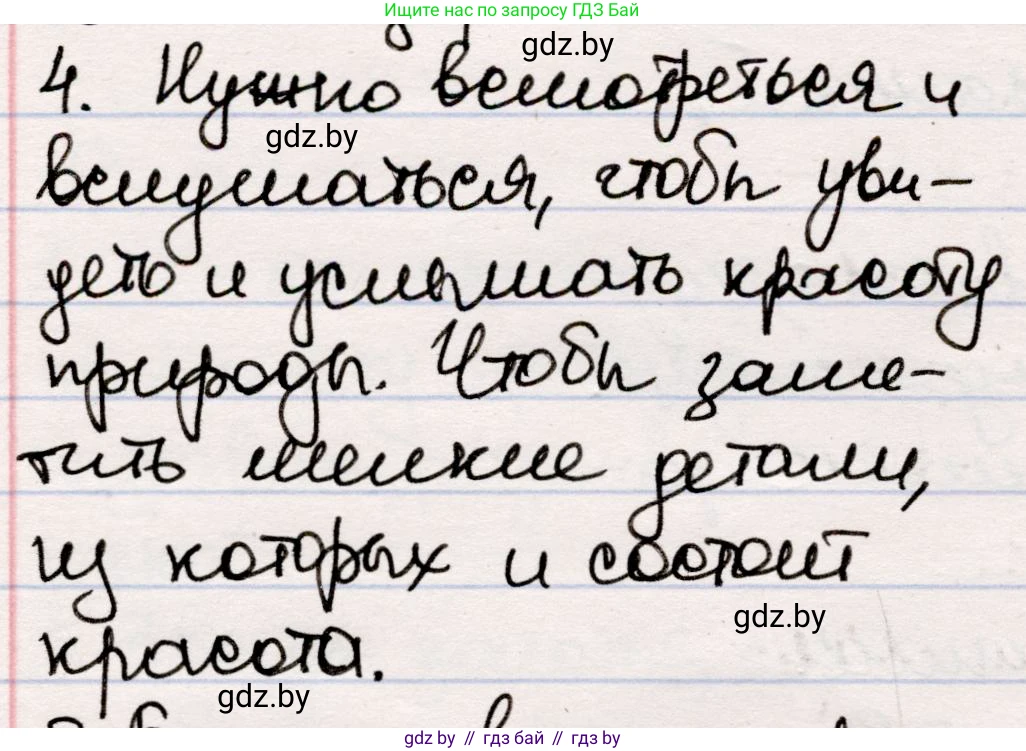 Ищите нас по запросу ГДЗ Бай
gdz.by
4. Нужно всмотреться и
gdz.by
вслушаться, чтобы уви-
деть и услышать красоту
природы. Чтобы заме-
тить мелкие детали,
из которых и состоит
gdz.by
красота.
gdz.by
gdz.by // гдз бай // гдз by